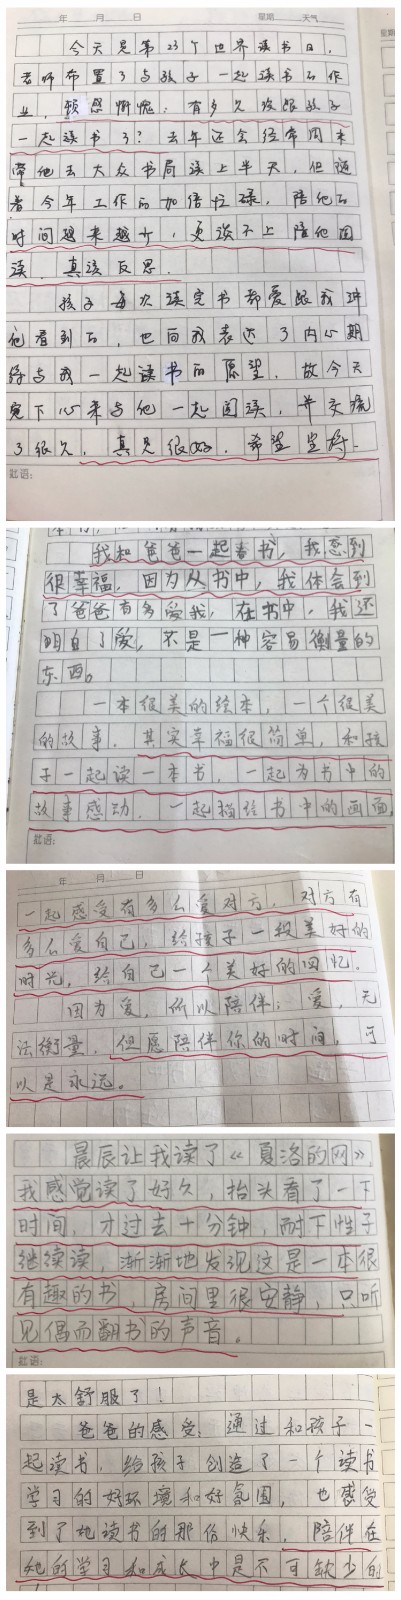 年 月 日 星期 天气
今天是第23个世界读书日，
老师布置了与孩子一起读书的作
业，颇感惭愧：有多久没跟孩子
一起读书了？去年还会经常周末
带他去大众书局读上半天，但随
着今年工作的加倍忙碌，陪他的
时间越来越少，更谈不上陪他阅
读，真该反思.
孩子每次读完书都爱跟我讲
他看到的，也向我表达了内心期
待与我一起读书的愿望，故今天
定下心来与他一起阅读，并交流
了很久，真是很好，希望坚持.
批语:
我和爸爸一起看书，我感到
很幸福，因为从书中，我体会到
了爸爸有多爱我，在书中，我还
明白了爱，不是一种容易衡量的
东西。
一本很美的绘本，一个很美
的故事，其实幸福很简单，和孩
子一起读一本书，一起为书中的
故事感动，一起描绘书中的画面，
批语:
年 月 日
一起感受有多么爱对方，对方有
多么爱自己，给孩子一段美好的
时光，给自己一个美好的回忆。
因为爱，所以陪伴；爱，无
法衡量，但愿陪伴你的时间，可
以是永远。
晨辰让我读了《夏洛的网》
我感觉读了好久，抬头看了一下
时间，才过去十分钟，耐下性子
继续读，渐渐地发现这是一本很
有趣的书，房间里很安静，只听
见偶而翻书的声音。
批语:
是太舒服了！
爸爸的感受：通过和孩子一
起读书，给孩子创造了一个读书
学习的好环境和好氛围，也感受
到了她读书的那份快乐，陪伴在
她的学习和成长中是不可缺少的